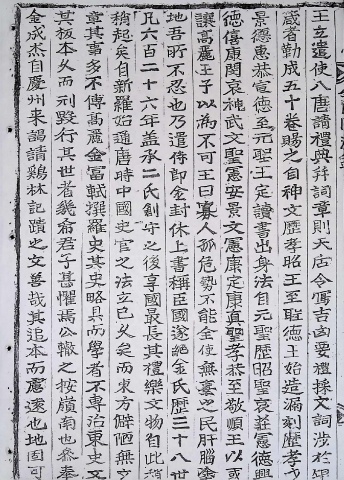 王立遣使入唐請禮典幷詞章則天后令寫吉凶要禮採文詞涉於
箴者勒成五十卷賜之自神文歷孝昭王至聖德王始造漏刻歷孝
景德惠恭宣德至元聖王定讀書出身法自元聖歷昭聖哀莊憲德興
德僖康閔哀神武文聖憲安景文憲康定康眞聖孝恭至敬順王以
讓高麗王子以為不可王曰寡人孤危勢不能全使無辜之民肝腦塗
地吾所不忍也乃遣侍郞金封休上書稱臣國遂絶金氏歷三十八世
凡六百二十六年盖承二氏創守之後享國最長其禮樂文物自此稍
稍起矣自新羅始通唐時中國史官之法立已久矣而東方僻陋無文
章其事多不傳高麗金富軾撰羅史其史略具而學者不專治東史又
其板本久而刓毀行其世者幾希君子甚懼焉公轍之按嶺南也參奉
金成杰自慶州来謁請鷄林記蹟之文善哉其追本而慮遠也地固可